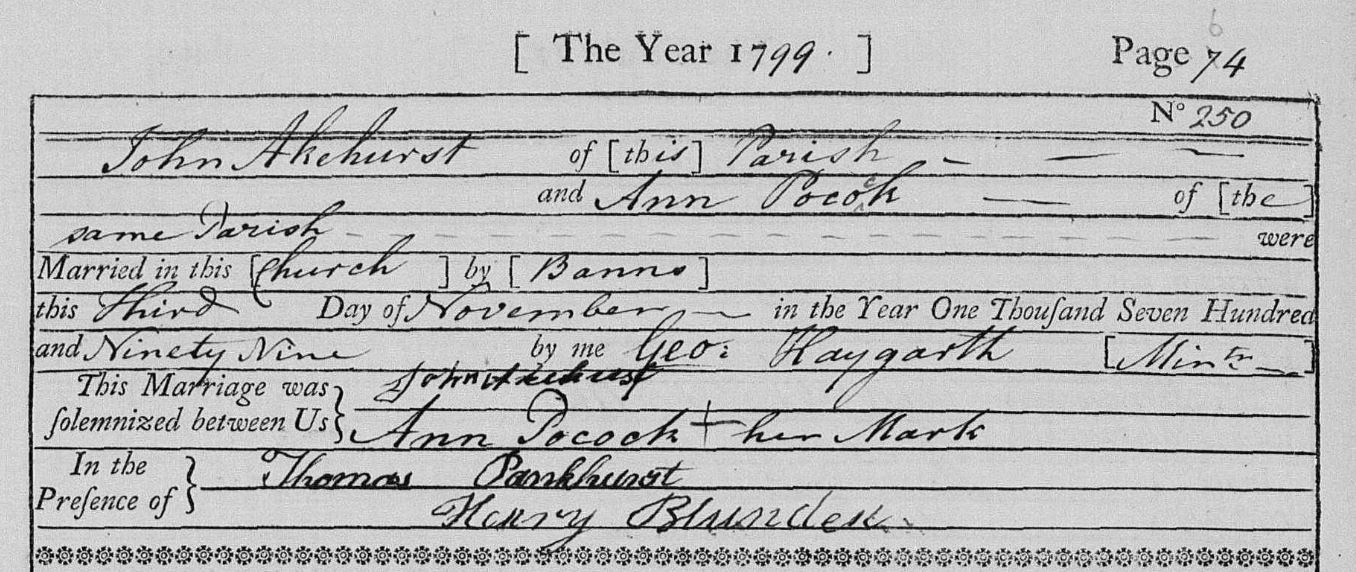 [ The Year 1799. ] Page 74
6
No 250
John Akehurst of [this] Parish
and Ann Pocock of [the]
same Parish were
Married in this [Church] by [Banns]
this Third Day of November in the Year One Thouſand Seven Hundred
and Ninety Nine by me Geo: Haygarth [Mintr]
This Marriage was John Akehust
ſolemnized between Us Ann Pocock + her Mark
In the Thomas Pankhurst
Preſence of Henry Blunden